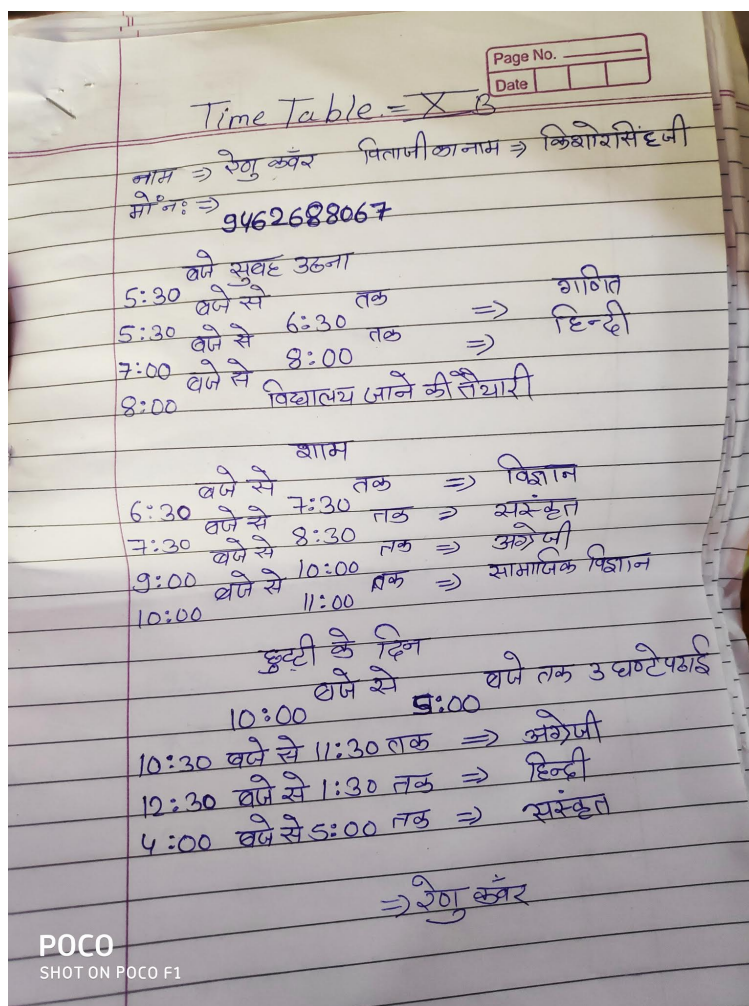 Page No.
Date
Time Table = X B
नाम ⇒ रेणु कवँर पिताजी का नाम ⇒ किशोरसिंह जी
मो॰ न॰: ⇒ 9462688067
5:30 बजे सुबह उठना
5:30 बजे से 6:30 तक ⇒ गणित
7:00 बजे से 8:00 तक ⇒ हिन्दी
8:00 बजे से विद्यालय जाने की तैयारी
शाम
6:30 बजे से 7:30 तक ⇒ विज्ञान
7:30 बजे से 8:30 तक ⇒ सस्ंकृत
9:00 बजे से 10:00 तक ⇒ अग्रेजी
10:00 बजे से 11:00 तक ⇒ सामाजिक विज्ञान
छुट्टी के दिन
10:00 बजे से 5:00 बजे तक 3 घण्टे पढाई
10:30 बजे से 11:30 तक ⇒ अग्रेजी
12:30 बजे से 1:30 तक ⇒ हिन्दी
4:00 बजे से 5:00 तक ⇒ सस्ंकृत
⇒ रेणु कवँर
POCO
SHOT ON POCO F1